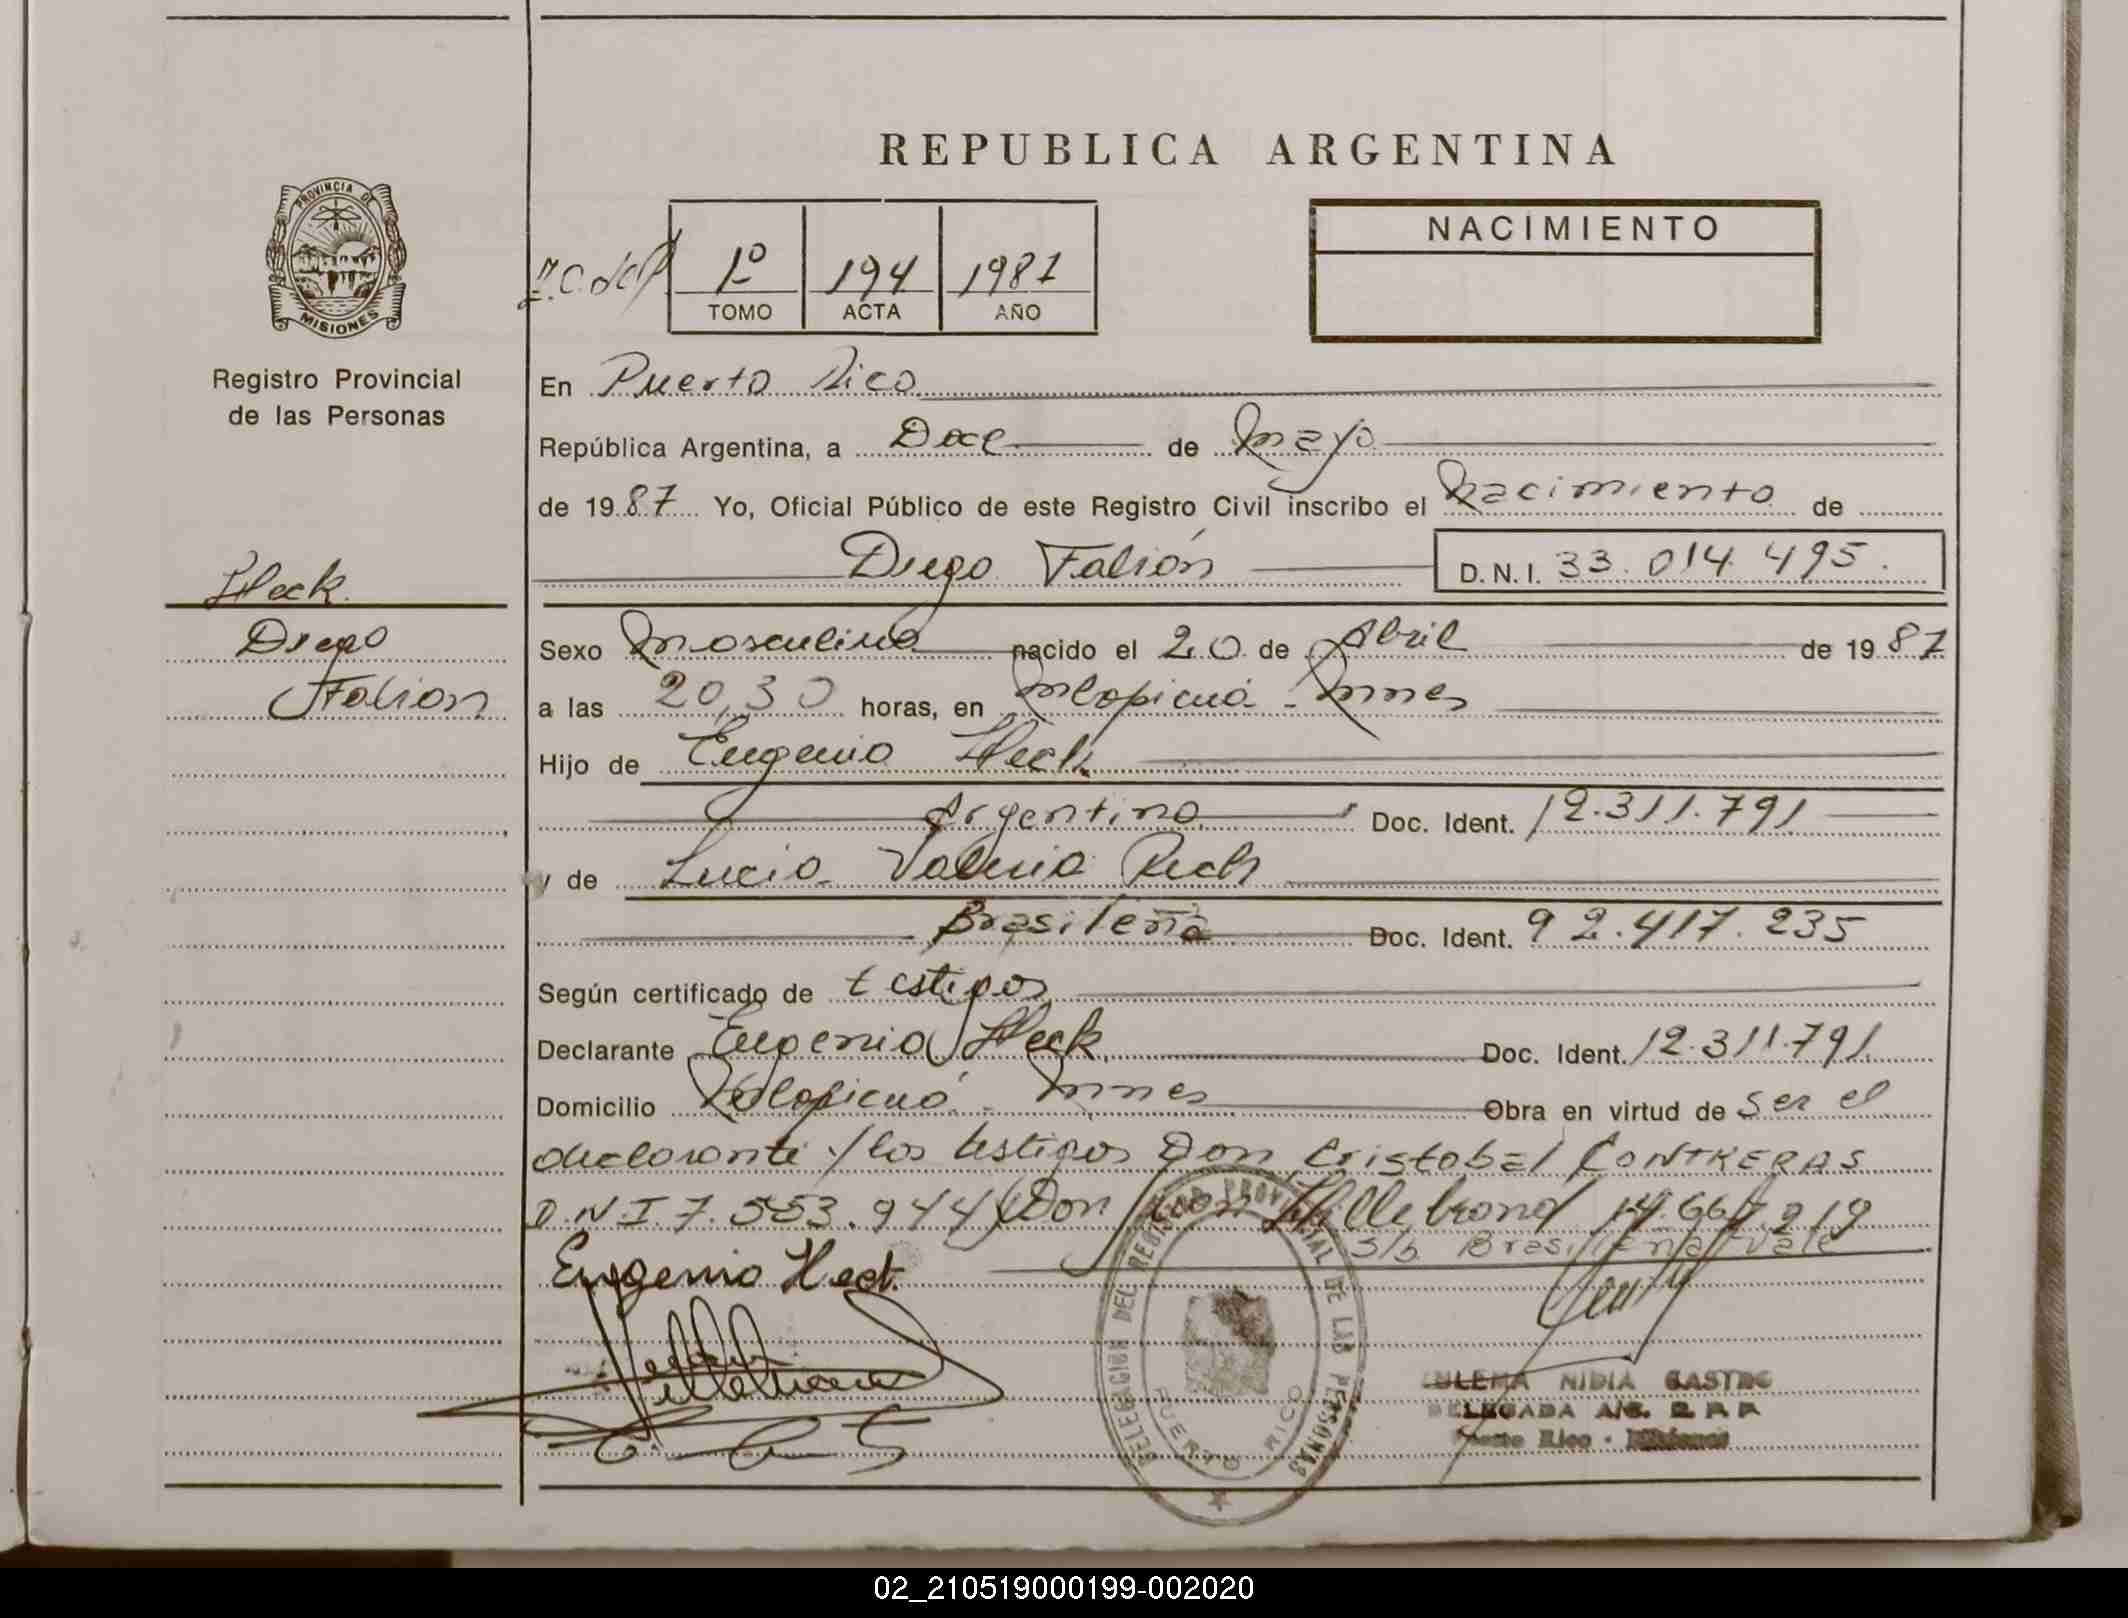 REPUBLICA ARGENTINA
PROVINCIA DE
MISIONES
Registro Provincial
de las Personas
1º 194 1987
TOMO ACTA AÑO
NACIMIENTO
En Puerto Rico
República Argentina, a Doce de Mayo
de 1987 Yo, Oficial Público de este Registro Civil inscribo el Nacimiento de
Diego Fabián D.N.I. 33.014.495.
Heck.
Diego
Fabian
Sexo Masculino nacido el 20 de Abril de 1987
a las 20,30 horas, en Mnes
Hijo de Eugenio Heck
Argentino Doc. Ident. 12.311.791
y de Lucia Valeria Rech
Brasileña Doc. Ident. 92.417.235
Según certificado de testigos
Declarante Eugenio Heck Doc. Ident. 12.311.791
Domicilio Mnes Obra en virtud de ser el
declarante y los testigos Don Cristobal CONTRERAS
D.N.I 7.553.944 y Don Hillebrand 14.667.219
S/b Brasileña Vale
Eugenio Heck.
DELEGACION DEL REGISTRO PROVINCIAL DE LAS PERSONAS
PUERTO RICO
ZULEMA NIDIA CASTRO
DELEGADA A/C. R. P. P.
Puerto Rico - Misiones
02_210519000199-002020